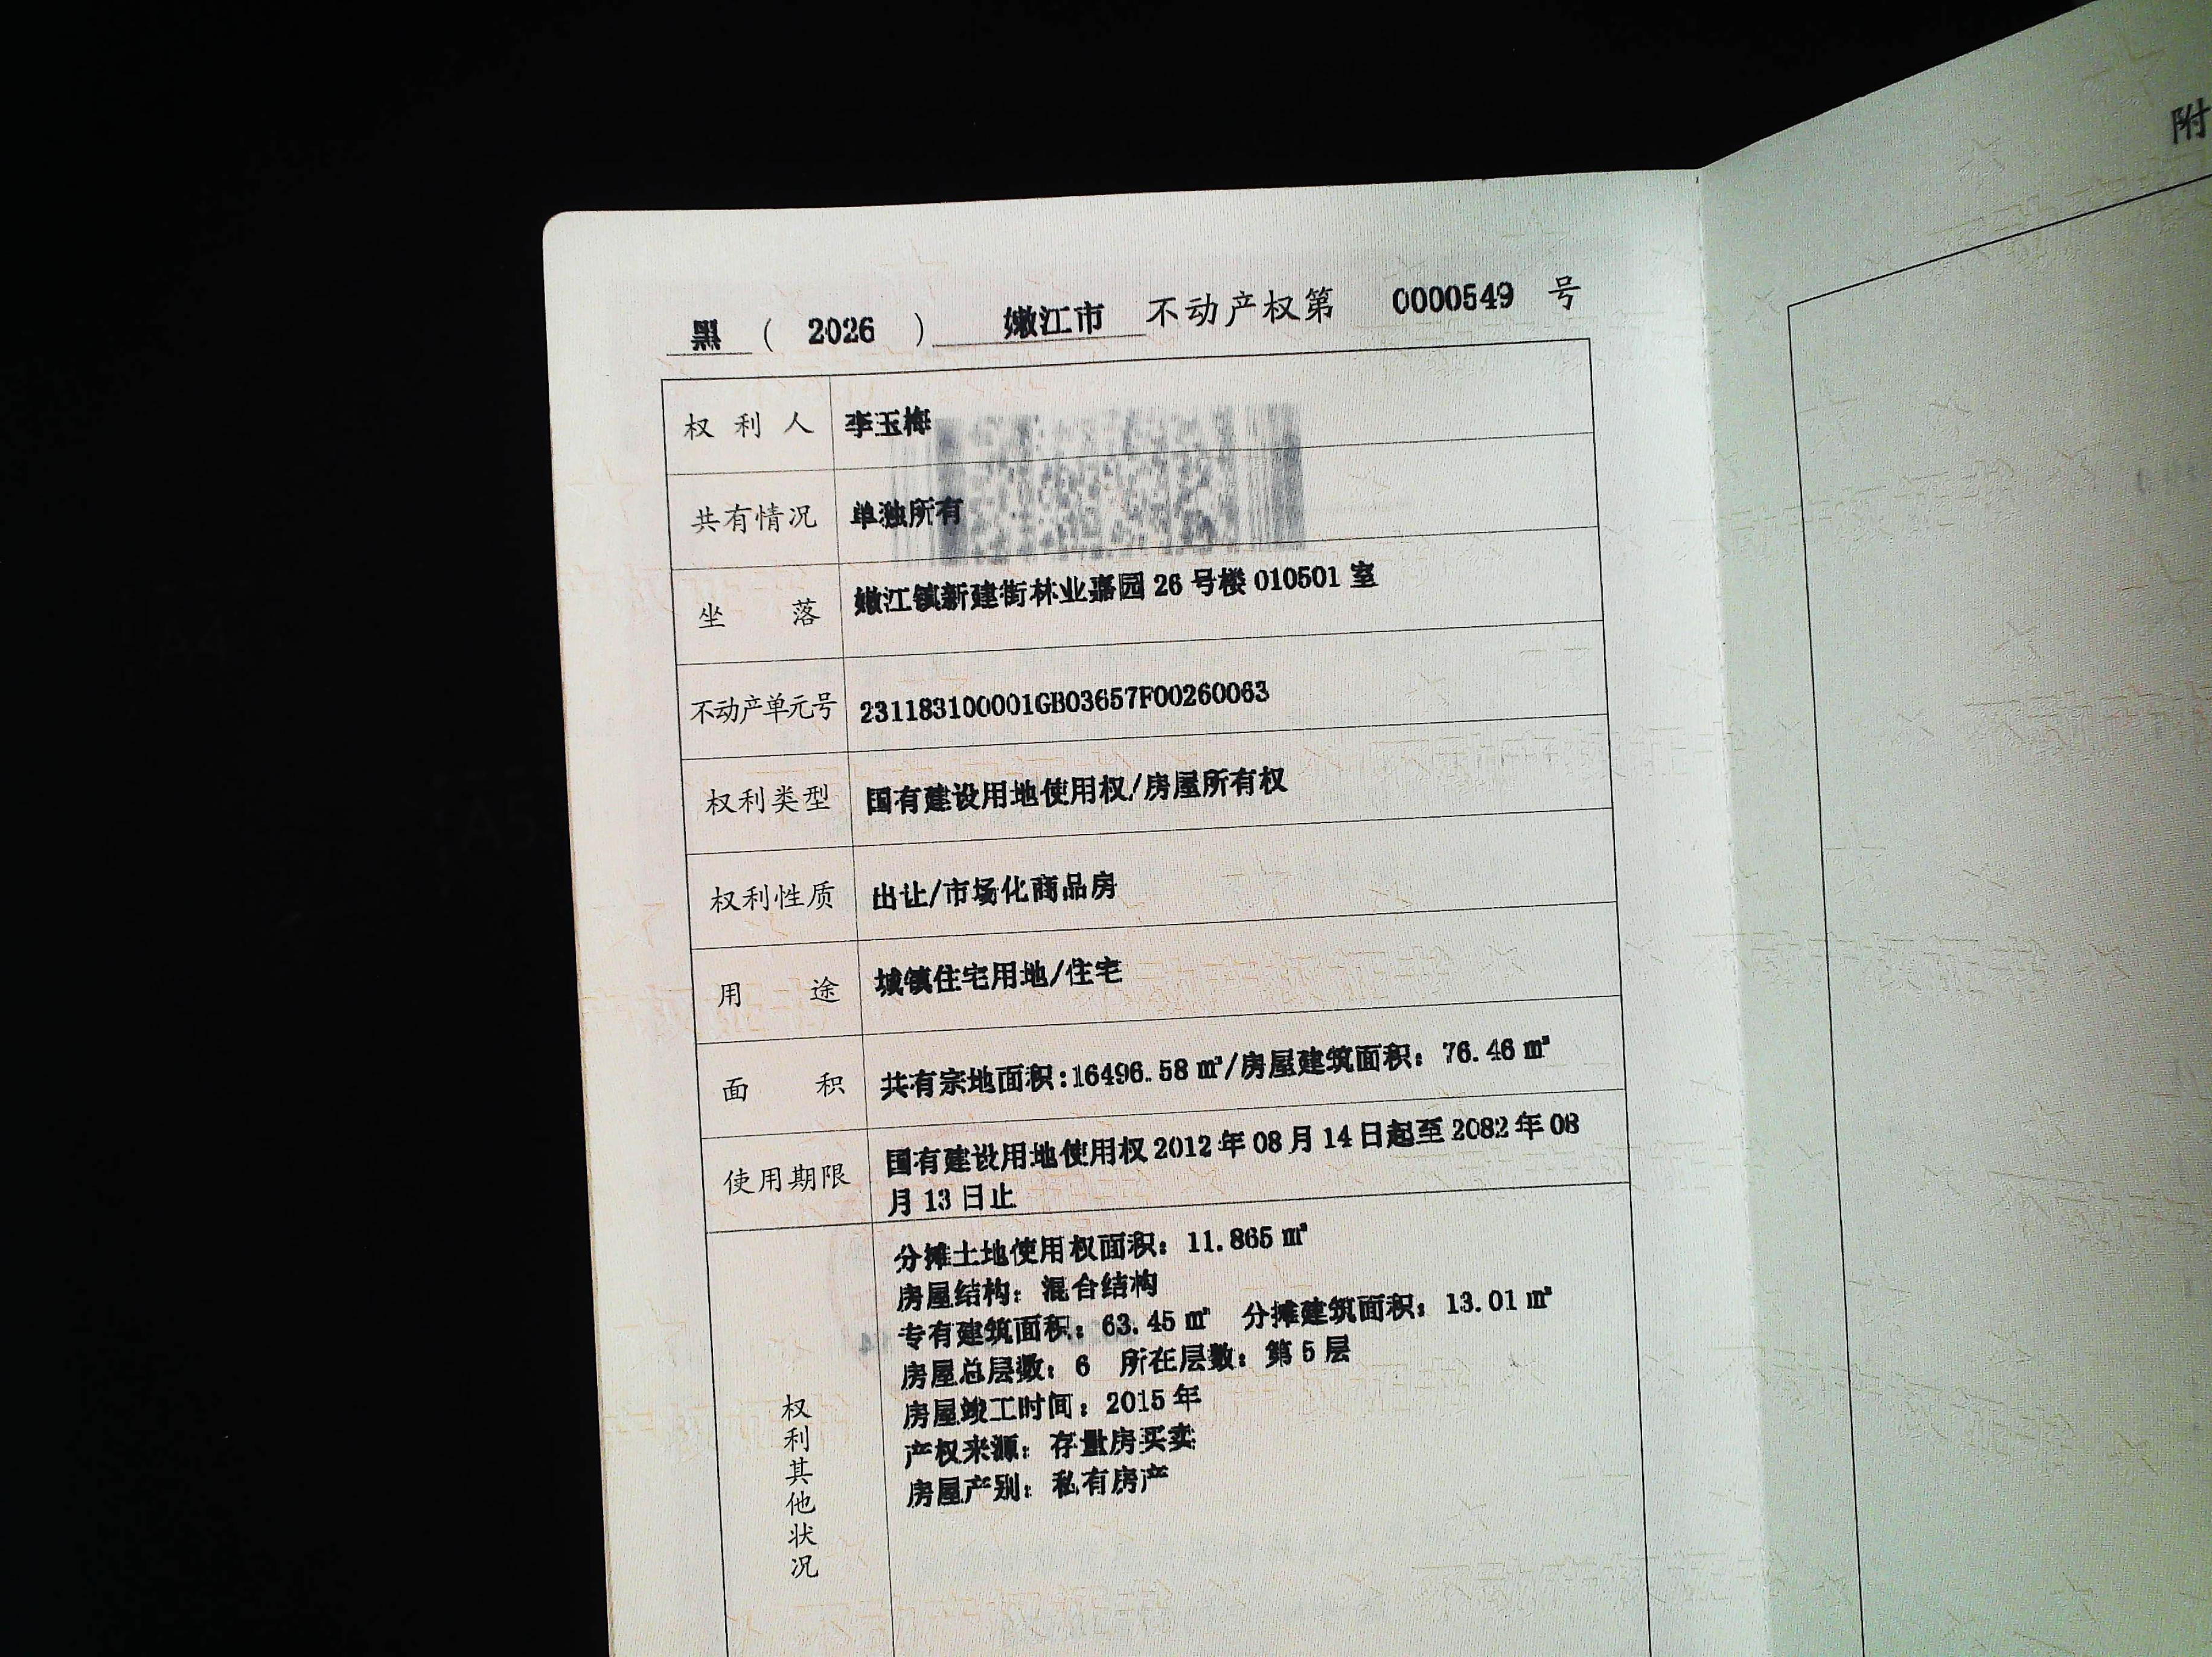 黑 ( 2026 ) 嫩江市 不动产权第 0000549 号
权利人 李玉梅
共有情况 单独所有
坐落 嫩江镇新建街林业嘉园 26 号楼 010501 室
不动产单元号 231183100001GB03657F00260063
权利类型 国有建设用地使用权/房屋所有权
权利性质 出让/市场化商品房
用途 城镇住宅用地/住宅
面积 共有宗地面积:16496.58 ㎡/房屋建筑面积：76.46 ㎡
使用期限 国有建设用地使用权 2012 年 08 月 14 日起至 2082 年 08
月 13 日止
权利其他状况
分摊土地使用权面积：11.865 ㎡
房屋结构：混合结构
专有建筑面积：63.45 ㎡ 分摊建筑面积：13.01 ㎡
房屋总层数：6 所在层数：第 5 层
房屋竣工时间：2015 年
产权来源：存量房买卖
房屋产别：私有房产
附